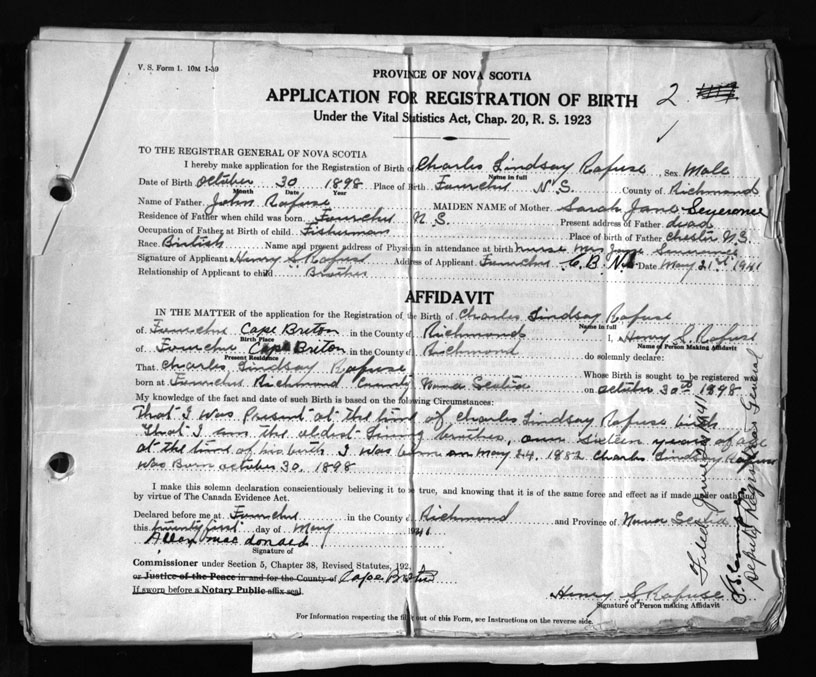 V. S. Form 1. 10M 1-39
PROVINCE OF NOVA SCOTIA
APPLICATION FOR REGISTRATION OF BIRTH 2
Under the Vital Statistics Act, Chap. 20, R. S. 1923
TO THE REGISTRAR GENERAL OF NOVA SCOTIA
I hereby make application for the Registration of Birth of Charles Lindsay Rafuse Sex Male
Name in full
Date of Birth October 30 1898 Place of Birth Fourchu N.S. County of Richmond
Month Date Year
Name of Father John Rafuse MAIDEN NAME of Mother Sarah Jane Severance
Residence of Father when child was born Fourchu N.S. Present address of Father dead
Occupation of Father at Birth of child Fisherman Place of birth of Father Chester N.S.
Race British Name and present address of Physician in attendance at birth nurse Mrs
Signature of Applicant Henry S Rafuse Address of Applicant Fourchu C.B. N.S. Date May 21st 1941
Relationship of Applicant to child Brother
AFFIDAVIT
IN THE MATTER of the application for the Registration of the Birth of Charles Lindsay Rafuse
Name in full
of Fourchu Cape Breton in the County of Richmond I, Henry S. Rafuse
Birth Place
Name of Person Making Affidavit
of Fourchu Cape Breton in the County of Richmond do solemnly declare:
Present Residence
That Charles Lindsay Rafuse Whose Birth is sought to be registered was
born at Fourchu Richmond County Nova Scotia on October 30th 1898
My knowledge of the fact and date of such Birth is based on the following Circumstances:
That I was Present at the time of Charles Lindsay Rafuse birth
That I am the oldest living brother, over sixteen years of age
at the time of his birth I was born on May 24, 1882 Charles Lindsay Rafuse
was Born October 30, 1898
I make this solemn declaration conscientiously believing it to be true, and knowing that it is of the same force and effect as if made under oath and
by virtue of The Canada Evidence Act.
Declared before me at Fourchu in the County of Richmond and Province of Nova Scotia
this twenty first day of May 1941
Allex MacDonald
Signature of
Commissioner under Section 5, Chapter 38, Revised Statutes, 192
or Justice of the Peace in and for the County of Cape Breton
If sworn before a Notary Public affix seal
Henry S. Rafuse
Signature of Person making Affidavit
For Information respecting the filling out of this Form, see Instructions on the reverse side.
Filed June 1941
Deputy Registrar General